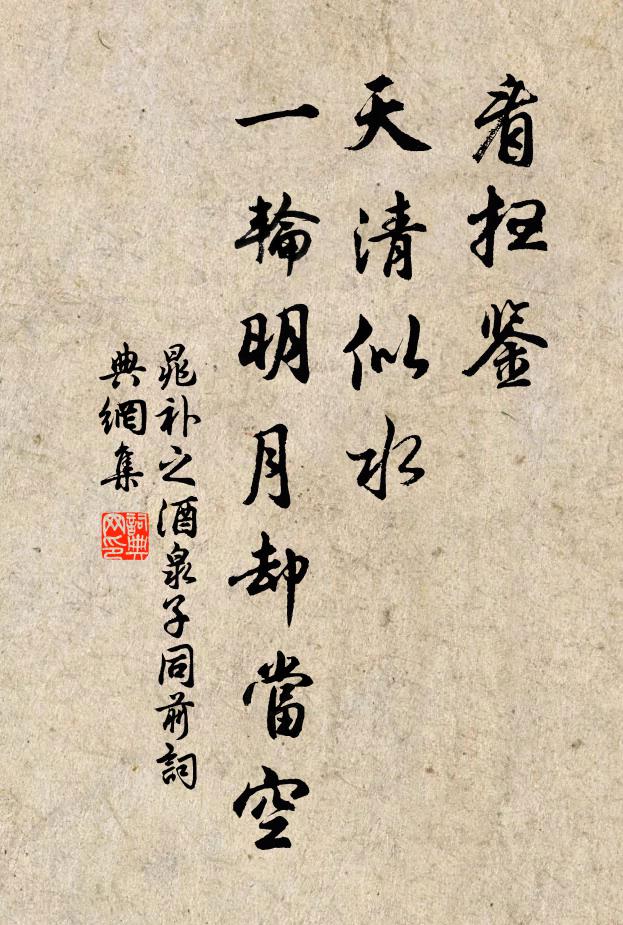 看扫鉴
天清似水
一輪明月却當空
晁补之酒泉子同前詞
典網集
詞典网印